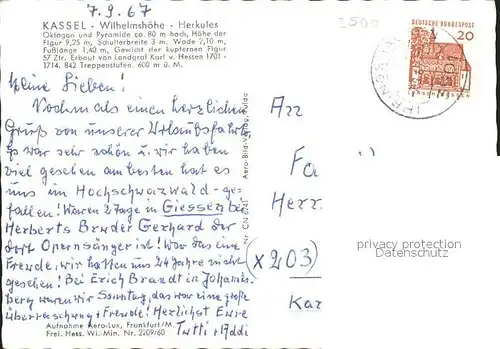 7.9.67
KASSEL - Wilhelmshöhe - Herkules
Oktogon und Pyramide ca. 80 m hoch, Höhe der
Figur 9,25 m, Schulterbreite 3 m, Wade 2,10 m,
Fußlänge 1,40 m, Gewicht der kupfernen Figur
57 Ztr. Erbaut von Landgraf Karl v. Hessen 1701 -
1714. 842 Treppenstufen. 600 m ü. M.
Meine Lieben!
Nochmals einen herzlichen
Gruß von unserer Urlaubsfahrt.
Es war sehr schön u. wir haben
viel gesehen am besten hat es
uns im Hochschwarzwald ge-
fallen! Waren 2 Tage in Giessen bei
Herberts Bruder Gerhard der
dort Opernsänger ist! War das eine
Freude, wir hatten uns 24 Jahre nicht
gesehen! Bei Erich Brandt in Johannes
berg waren wir Sonntag, das war eine große
Überraschung u. Freude! Herzlichst Eure
Tutti + Addi
Aufnahme Aero-Lux, Frankfurt/M.
Frei. Hess. Wi.-Min. Nr. 2209/60
Nr. CN 6241
Aero-Bild-Verlag, Fulda
DEUTSCHE BUNDESPOST
20
An
Fa
Herr
(x 203)
Kar
privacy protection
Datenschutz